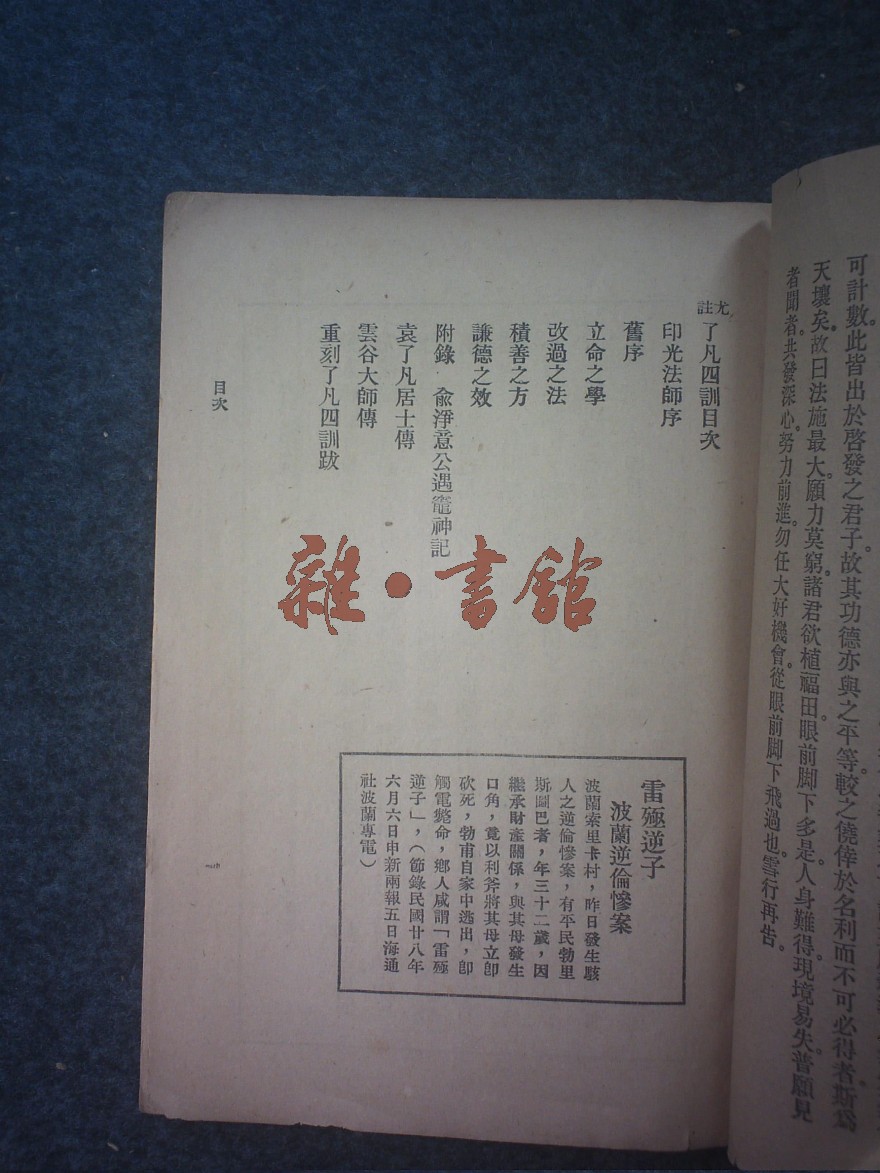 可計數此皆出於啓發之君子。故其功德亦與之平等。較之僥倖於名利而不可必得者。斯爲
天壤矣。故曰法施最大。願力莫窮。諸君欲植福田。眼前脚下多是。人身難得。現境易失。普願見
者聞者。共發深心。努力前進。勿任大好機會。從眼前脚下飛過也。雪行再告。
尤註了凡四訓目次
印光法師序
舊序
立命之學
改過之法
積善之方
謙德之效
附錄 俞淨意公遇竈神記
袁了凡居士傳
雲谷大師傳
重刻了凡四訓跋
目次
一
雷殛逆子
波蘭逆倫慘案
波蘭索里卡村，昨日發生駭
人之逆倫慘案，有平民勃里
斯圖巴者，年三十二歲，因
繼承財產關係，與其母發生
口角，竟以利斧將其母立卽
砍死，勃甫自家中逃出，卽
觸電斃命，鄉人咸謂「雷殛
逆子」，（節錄民國廿八年
六月六日申新兩報五日海通
社波蘭專電）
雜·書館